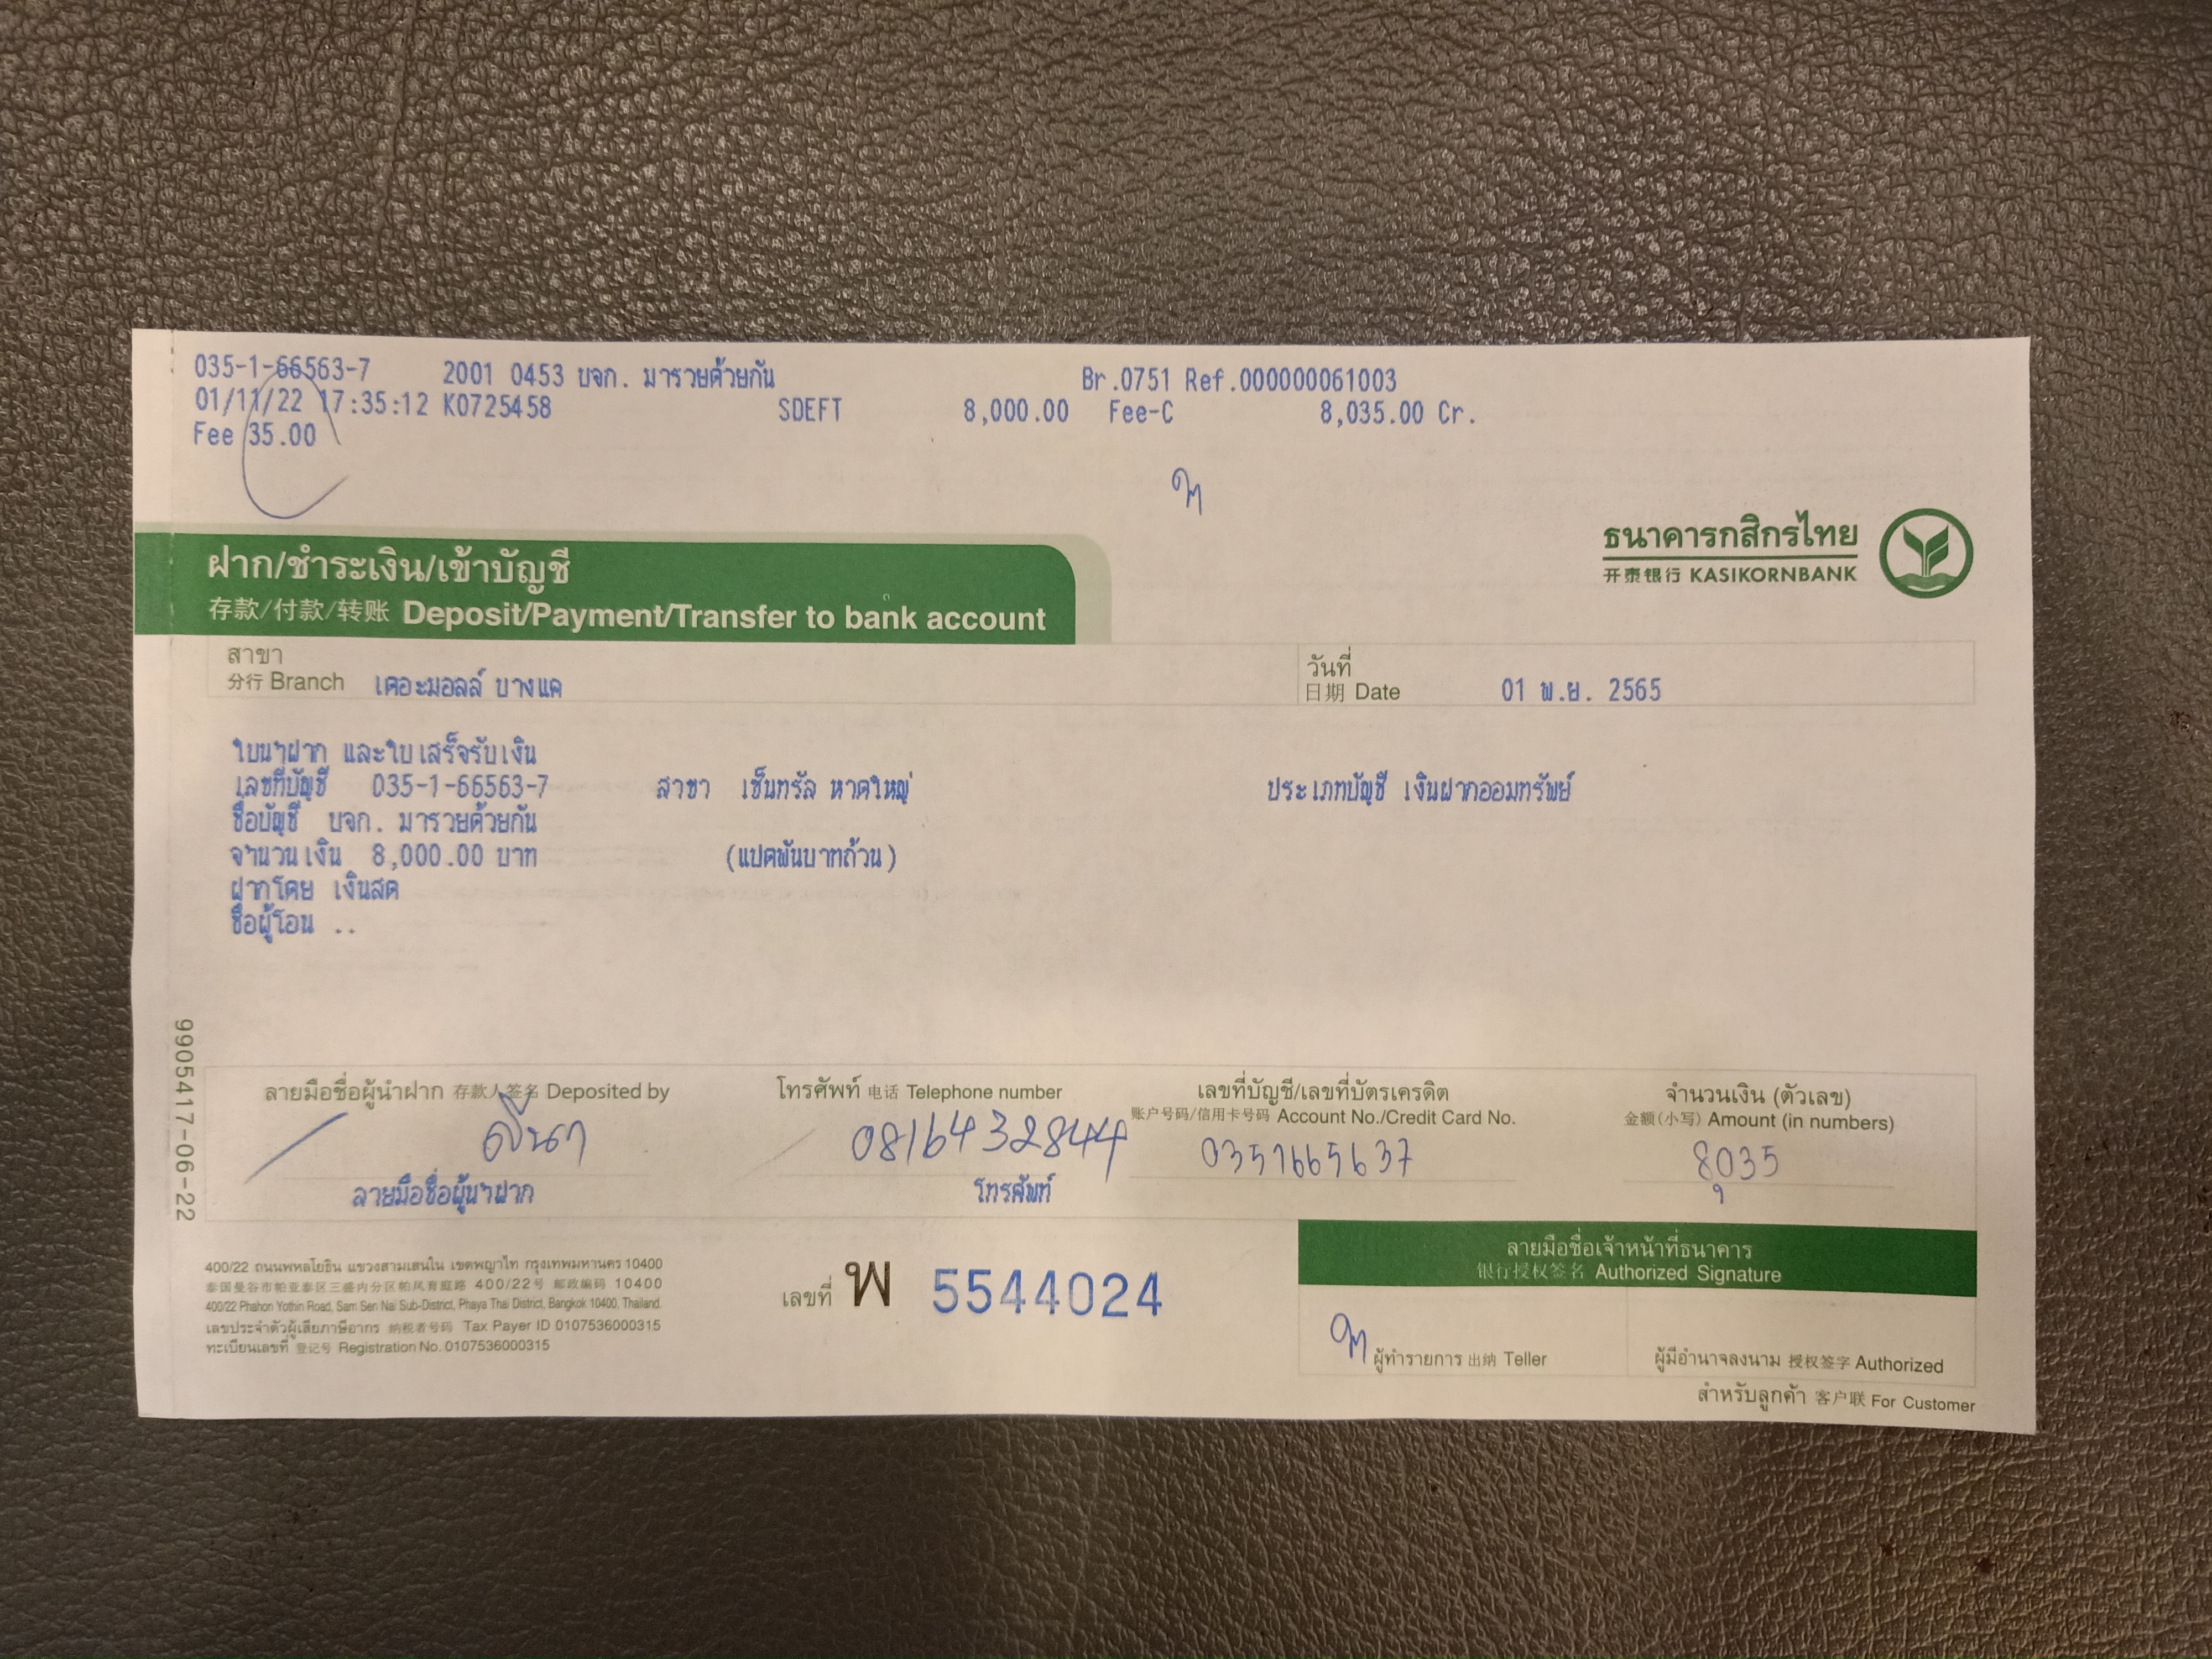 035-1-66563-7 2001 0453 บจก. มารวยด้วยกัน Br.0751 Ref.000000061003
01/11/22 17:35:12 K0725458 SDEFT 8,000.00 Fee-C 8,035.00 Cr.
Fee 35.00
ธนาคารกสิกรไทย
开泰银行 KASIKORNBANK
ฝาก/ชำระเงิน/เข้าบัญชี
存款/付款/转账 Deposit/Payment/Transfer to bank account
สาขา
分行 Branch เดอะมอลล์ บางแค
วันที่
日期 Date 01 พ.ย. 2565
ใบนำฝาก และใบเสร็จรับเงิน
เลขที่บัญชี 035-1-66563-7 สาขา เซ็นทรัล หาดใหญ่ ประเภทบัญชี เงินฝากออมทรัพย์
ชื่อบัญชี บจก. มารวยด้วยกัน
จำนวนเงิน 8,000.00 บาท (แปดพันบาทถ้วน)
ฝากโดย เงินสด
ชื่อผู้โอน ..
9905417-06-22
ลายมือชื่อผู้นำฝาก 存款人签名 Deposited by
ลีนา
ลายมือชื่อผู้นำฝาก
โทรศัพท์ 电话 Telephone number
0816432844
โทรศัพท์
เลขที่บัญชี/เลขที่บัตรเครดิต
账户号码/信用卡号码 Account No./Credit Card No.
0351665637
จำนวนเงิน (ตัวเลข)
金额(小写) Amount (in numbers)
8,035
400/22 ถนนพหลโยธิน แขวงสามเสนใน เขตพญาไท กรุงเทพมหานคร 10400
泰国曼谷市帕亚泰区三盛内分区帕凤育庭路 400/22号 邮政编码 10400
400/22 Phahon Yothin Road, Sam Sen Nai Sub-District, Phaya Thai District, Bangkok 10400, Thailand.
เลขประจำตัวผู้เสียภาษีอากร 纳税者号码 Tax Payer ID 0107536000315
ทะเบียนเลขที่ 登记号 Registration No. 0107536000315
เลขที่ พ 5544024
ลายมือชื่อเจ้าหน้าที่ธนาคาร
银行授权签名 Authorized Signature
ผู้ทำรายการ 出纳 Teller
ผู้มีอำนาจลงนาม 授权签字 Authorized
สำหรับลูกค้า 客户联 For Customer